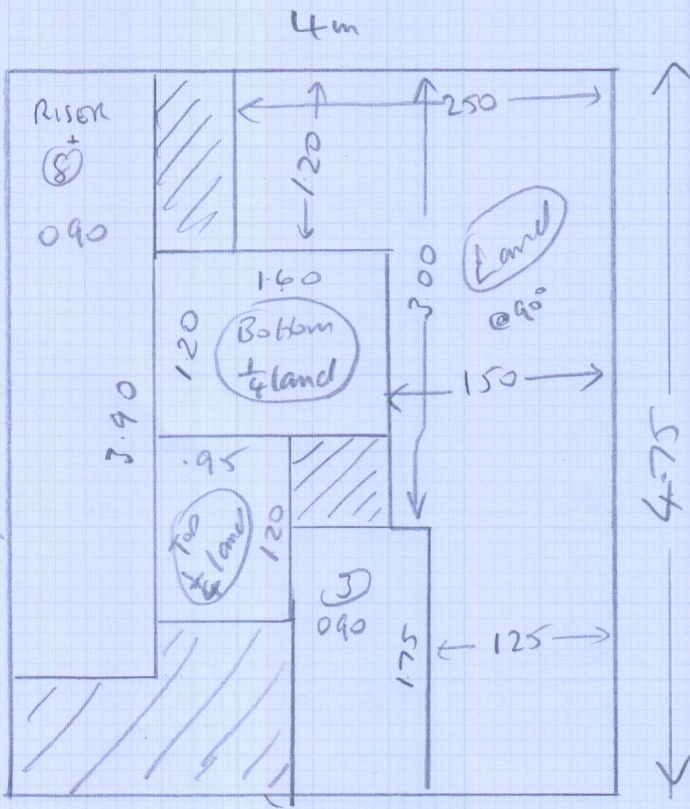 4m
RISER
8+
090
250
1.20
Land
@90°
3.00
1.60
1.20
Bottom
1/4 land
150
3.90
4.75
.95
Top
1/4 land
120
090
175
125